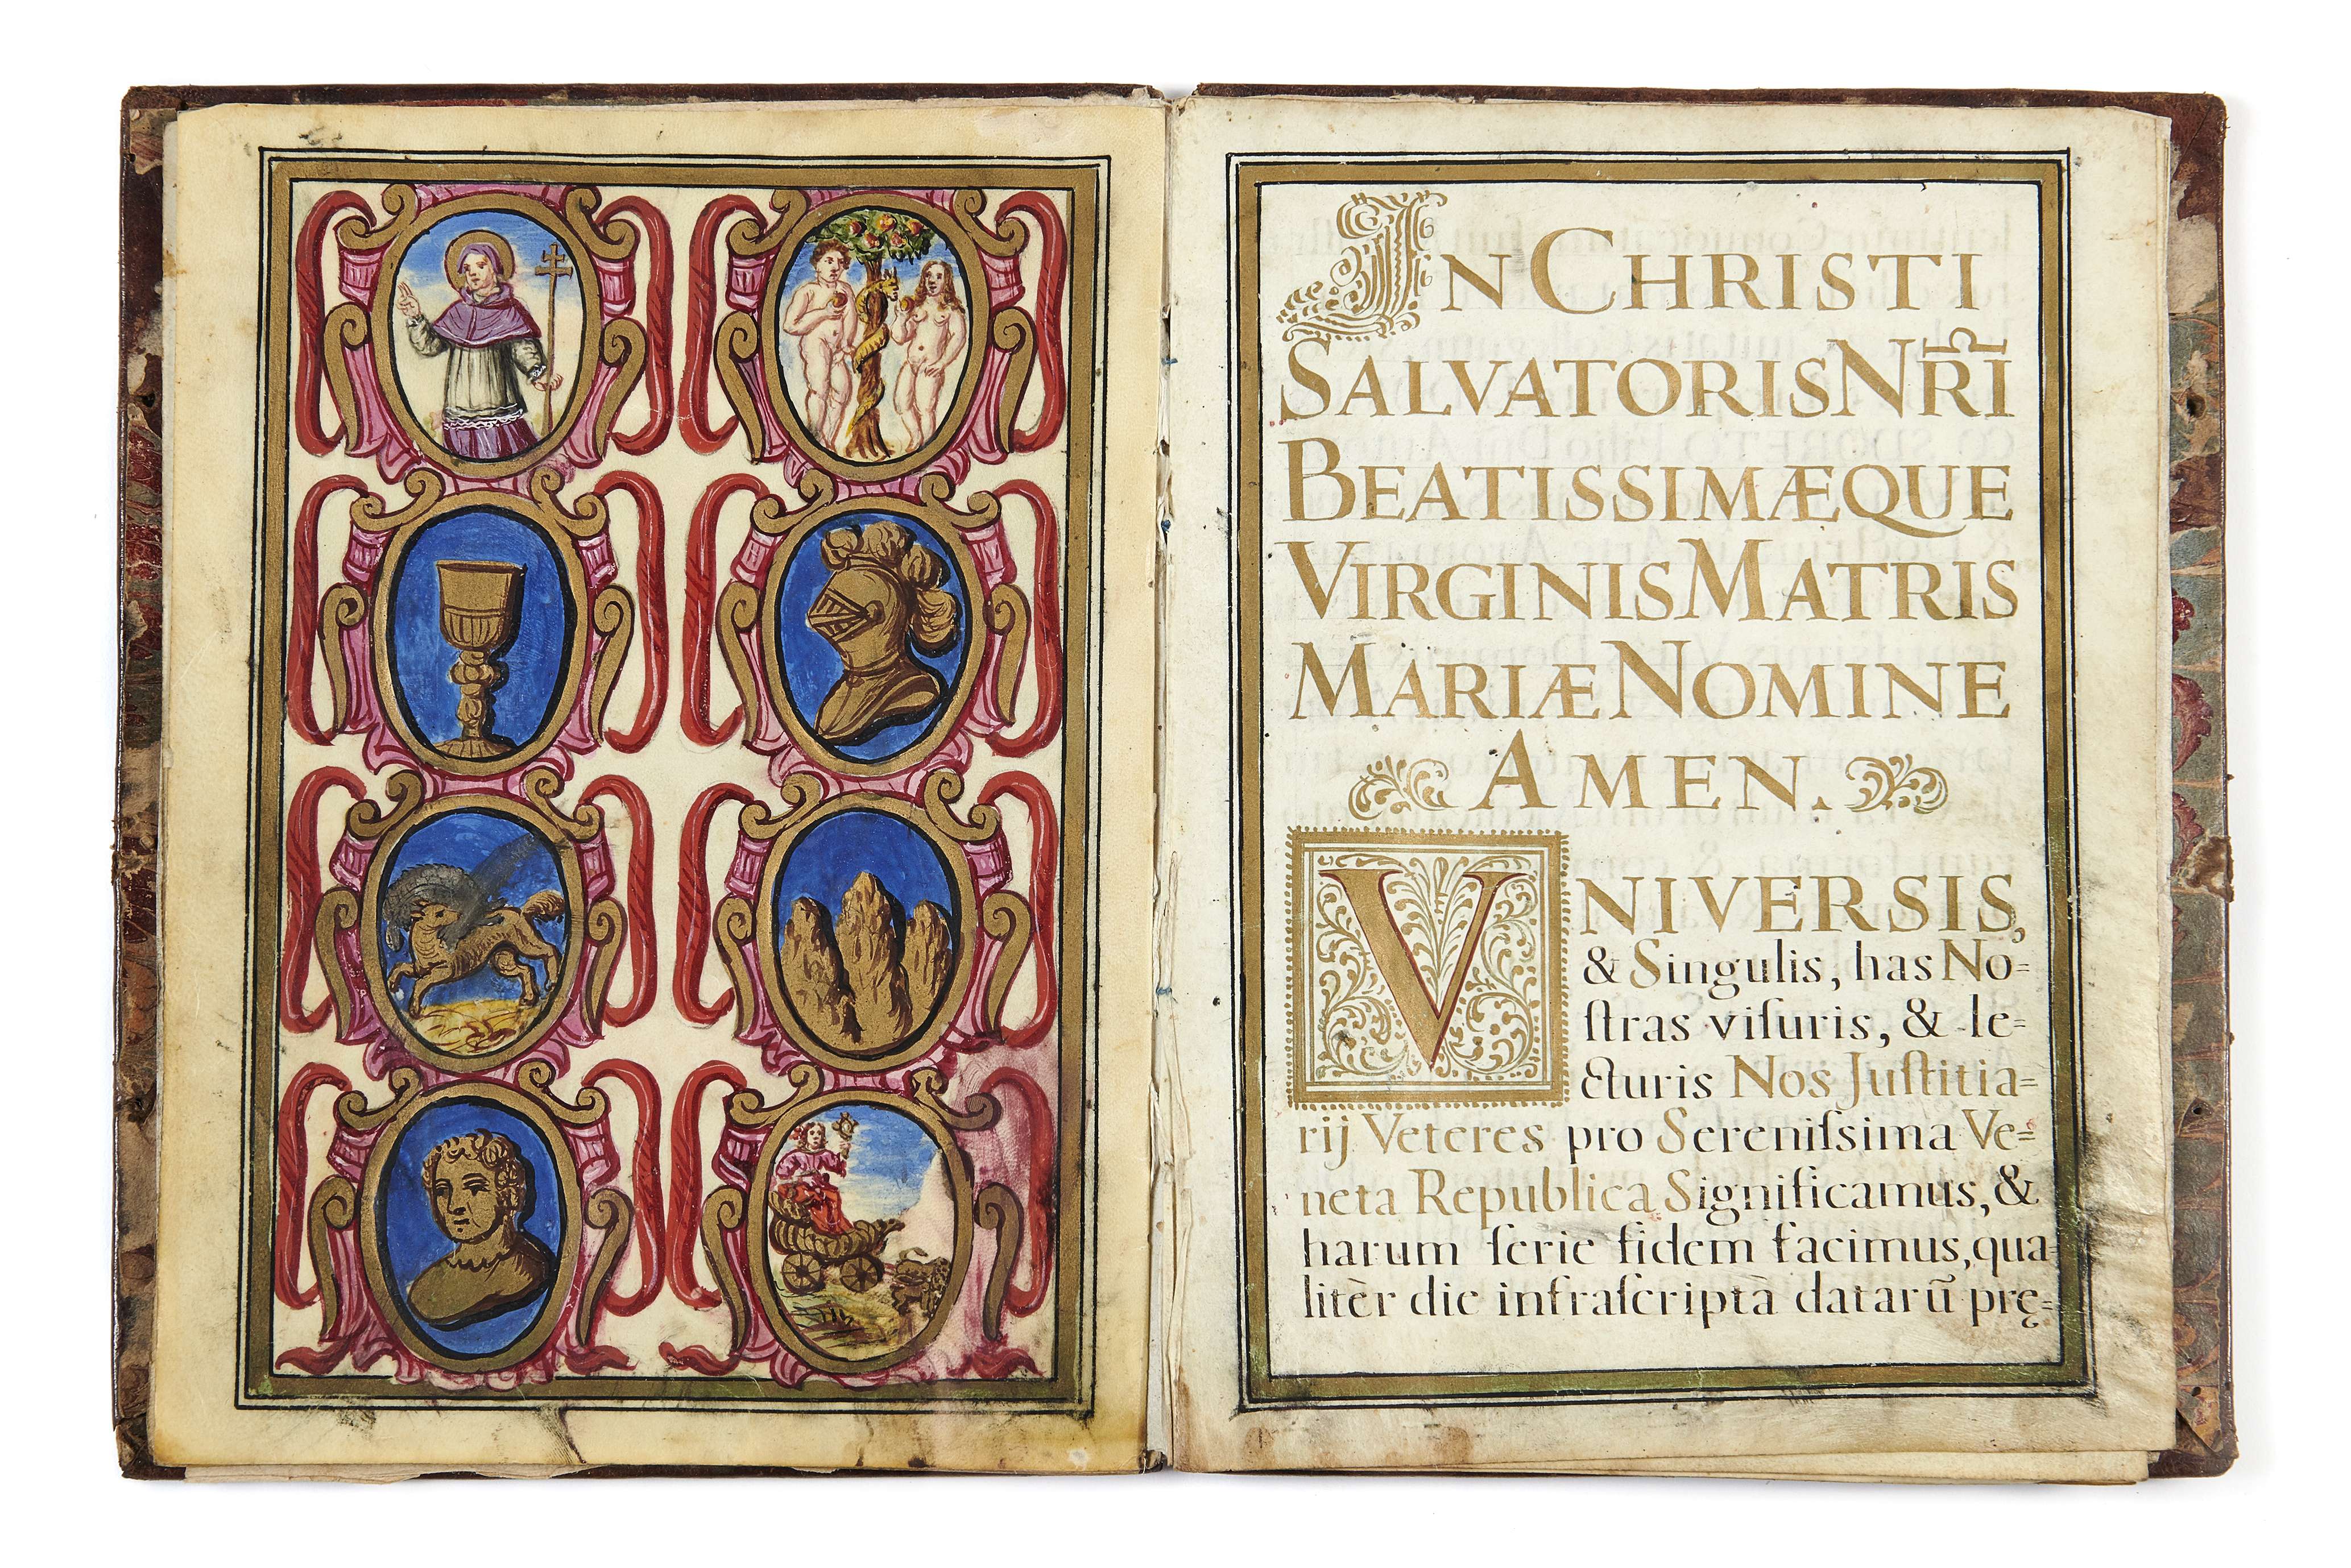 IN CHRISTI
SALVATORIS NR̃I
BEATISSIMÆQUE
VIRGINIS MATRIS
MARIÆ NOMINE
AMEN.
VNIVERSIS,
& Singulis, has No=
ſtras viſuris, & le=
cturis Nos Juſtitia=
rij Veteres pro Sereniſsima Ve=
neta Republica Significamus, &
harum ſerie fidem facimus, qua=
litèr die infraſcriptà datarũ prę=